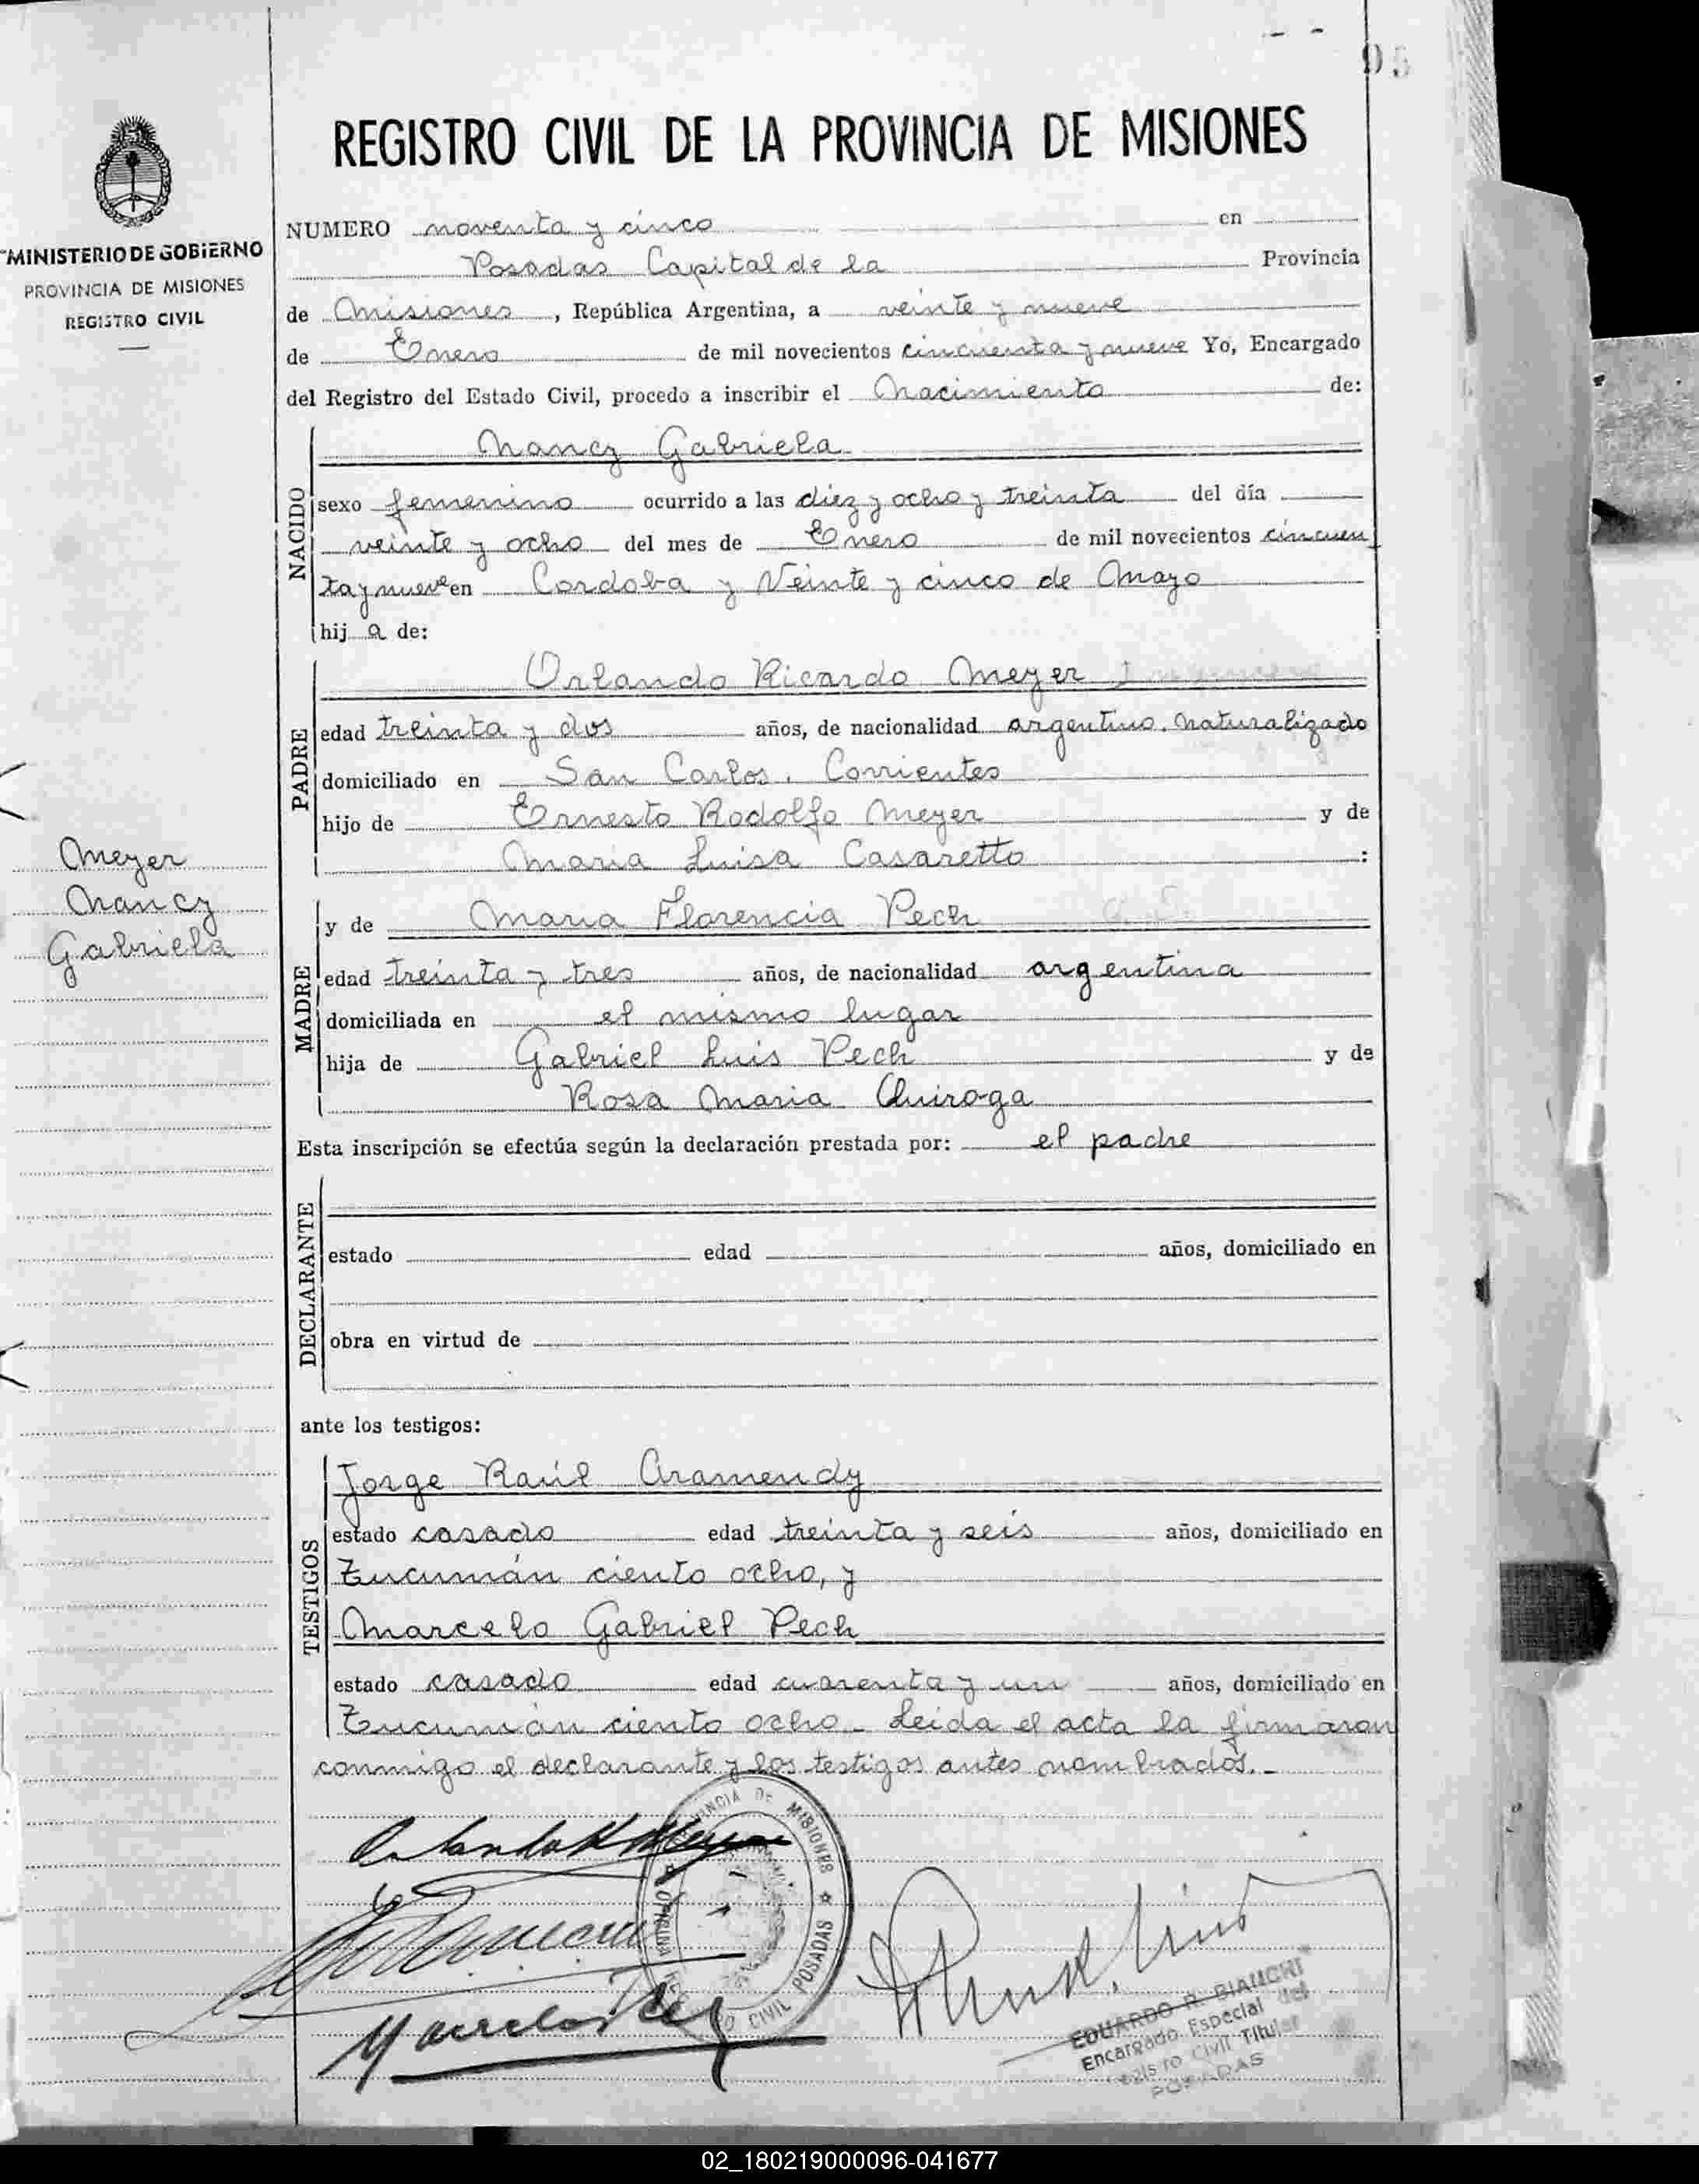 95
REGISTRO CIVIL DE LA PROVINCIA DE MISIONES
MINISTERIO DE GOBIERNO
PROVINCIA DE MISIONES
REGISTRO CIVIL
NUMERO noventa y cinco en
Posadas Capital de la Provincia
de Misiones, República Argentina, a veinte y nueve
de Enero de mil novecientos cincuenta y nueve Yo, Encargado
del Registro del Estado Civil, procedo a inscribir el Nacimiento de:
NACIDO
Nancy Gabriela
sexo femenino ocurrido a las diez y ocho y treinta del día
veinte y ocho del mes de Enero de mil novecientos cincuen
ta y nueve en Cordoba y Veinte y cinco de Mayo
hij a de:
PADRE
Orlando Ricardo Meyer
edad treinta y dos años, de nacionalidad argentino. naturalizado
domiciliado en San Carlos. Corrientes
hijo de Ernesto Rodolfo Meyer y de
Maria Luisa Casaretto :
Meyer
Nancy
Gabriela
MADRE
y de Maria Florencia Pech
edad treinta y tres años, de nacionalidad argentina
domiciliada en el mismo lugar
hija de Gabriel Luis Pech y de
Rosa Maria Quiroga
Esta inscripción se efectúa según la declaración prestada por: el padre
DECLARANTE
estado edad años, domiciliado en
obra en virtud de
ante los testigos:
TESTIGOS
Jorge Raúl Aramendy
estado casado edad treinta y seis años, domiciliado en
Tucumán ciento ocho, y
Marcelo Gabriel Pech
estado casado edad cuarenta y un años, domiciliado en
Tucumán ciento ocho_ Leida el acta la firmaron
conmigo el declarante y los testigos antes nombrados._
Orlando R Meyer
PROVINCIA DE MISIONES
OFICINA REGISTRO CIVIL POSADAS
Marcelo Pech
EDUARDO R. BIANCHI
Encargado Especial del
Registro Civil Titular
POSADAS
02_180219000096-041677